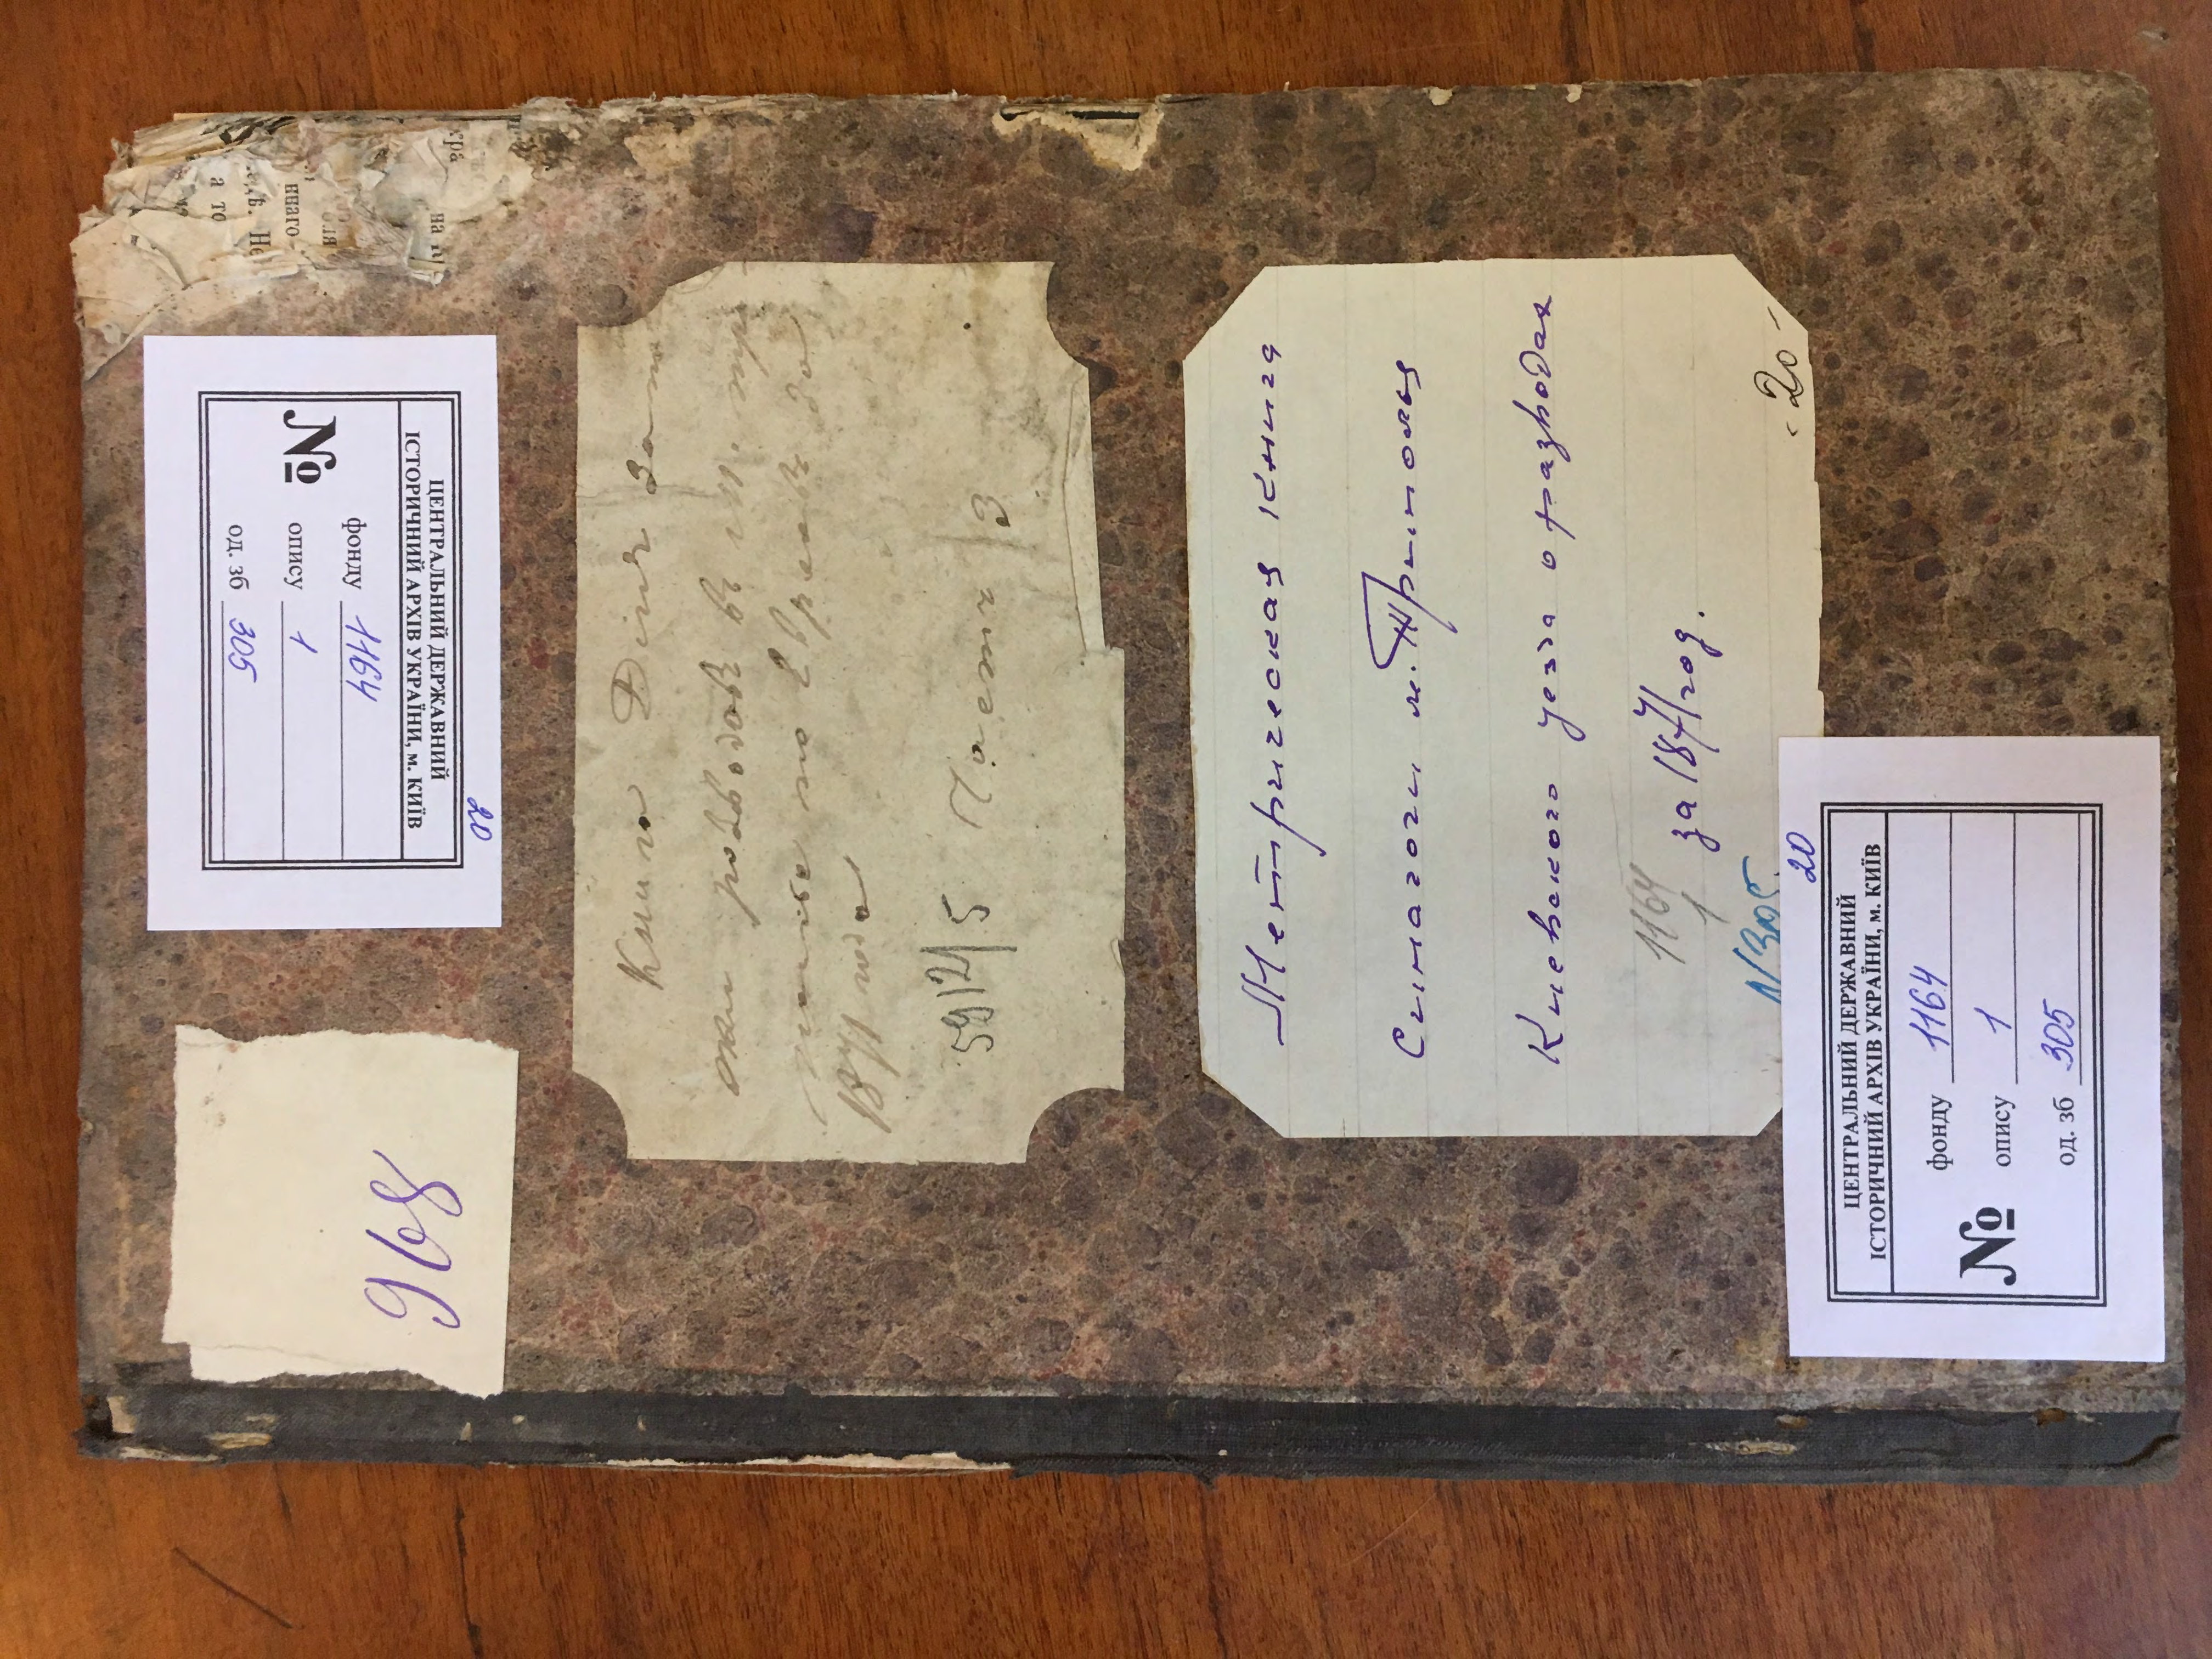 968
ЦЕНТРАЛЬНИЙ ДЕРЖАВНИЙ
ІСТОРИЧНИЙ АРХІВ УКРАЇНИ, м. КИЇВ
№
фонду 1164
опису 1
од. зб 305
20
Книга Для запи
ски розводовъ въ м. Три
1871 года
59/12/5 Части /3
Метрическая книга
Синагоги м. Триполья
Киевского уезда о разводах
за 1871 год.
1164
1
N305
- 20 -
20
ЦЕНТРАЛЬНИЙ ДЕРЖАВНИЙ
ІСТОРИЧНИЙ АРХІВ УКРАЇНИ, м. КИЇВ
№
фонду 1164
опису 1
од. зб 305
кра
на
ннаго
Не
а то